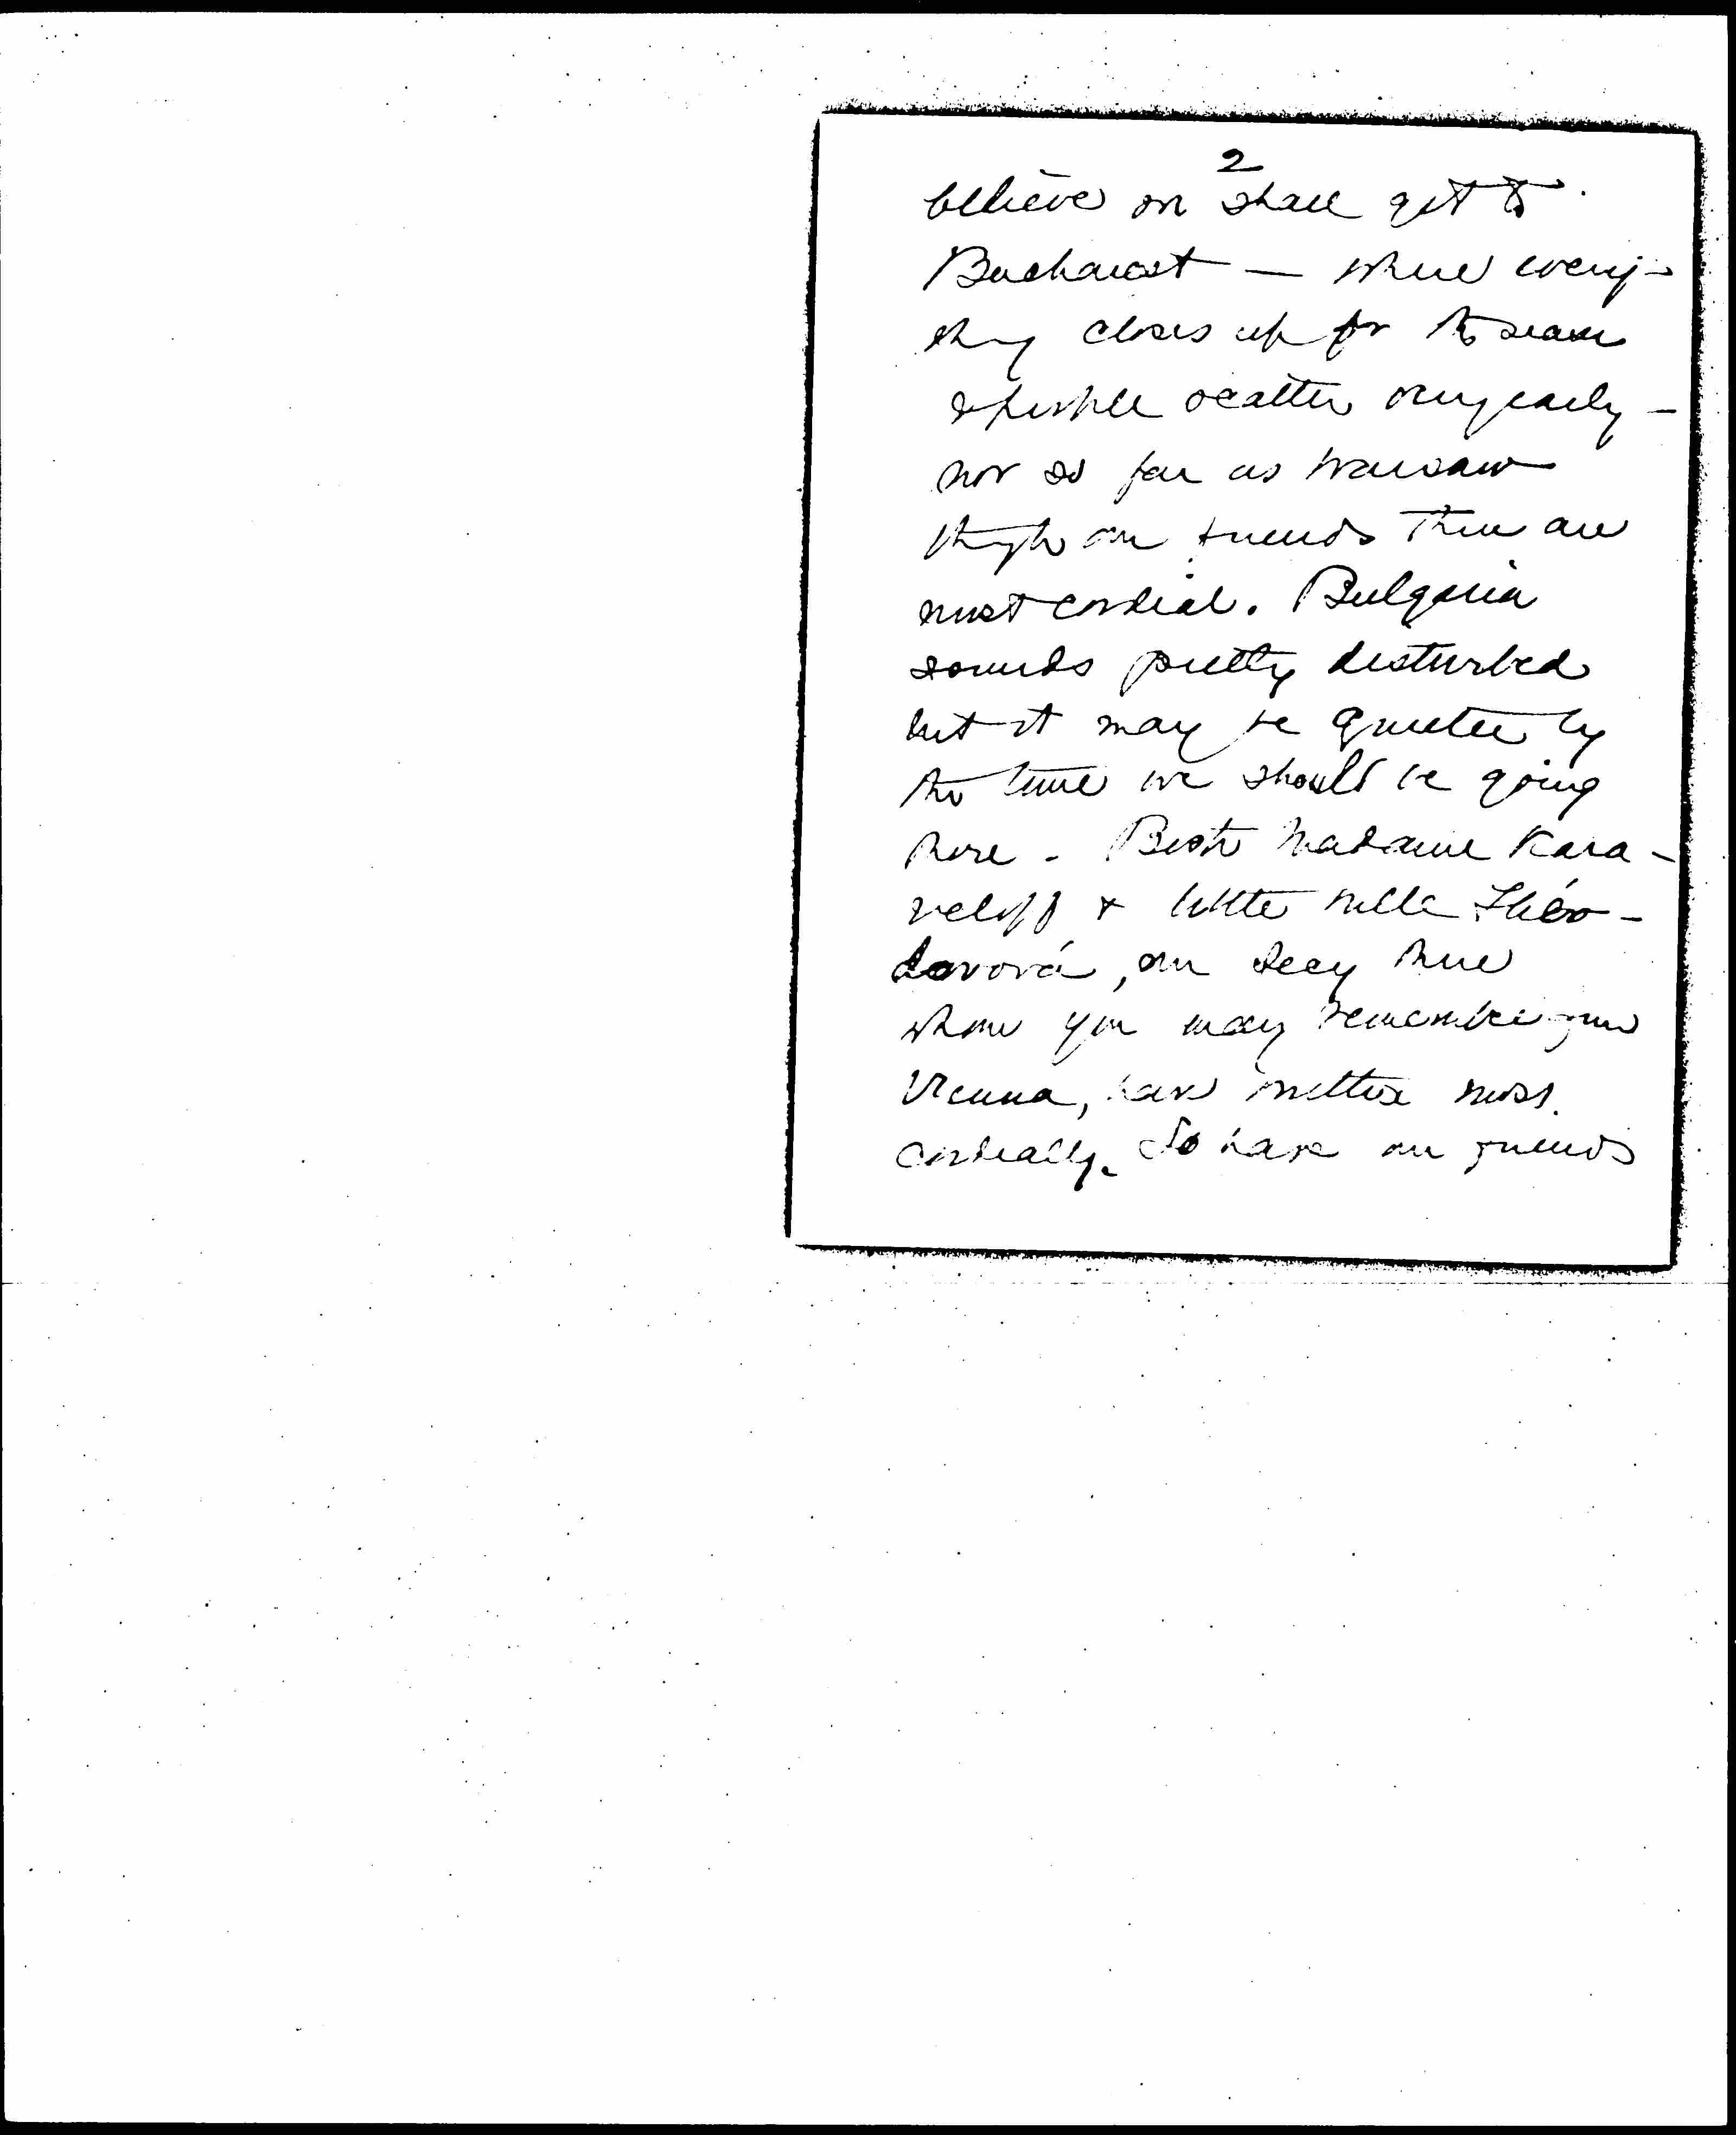 2
believe we shall get to
Bucharest — where every-
thing closes up for the season
& people scatter very early —
nor so far as Warsaw
though our friends there are
most cordial. Bulgaria
sounds pretty disturbed
but it may be quieter by
the time we should be going
there. Both Madame Kara-
veloff & little Mlle Théo-
dorova, our Secy there
whom you may remember from
Vienna, have written most
cordially. So have our friends